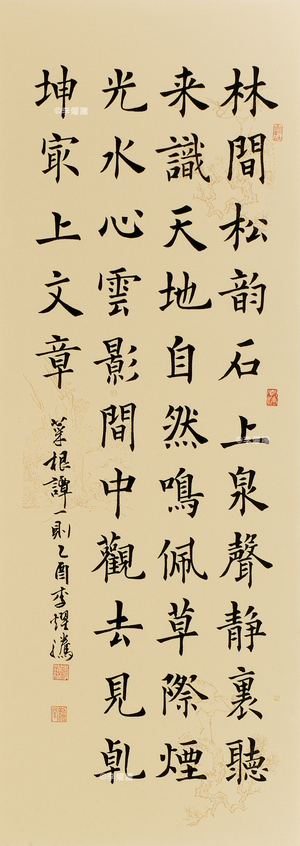 林間松韵石上泉聲静裏聽
来識天地自然鳴佩草際煙
光水心雲影間中觀去見乹
坤㝡上文章
菜根譚一則乙酉李燿騰